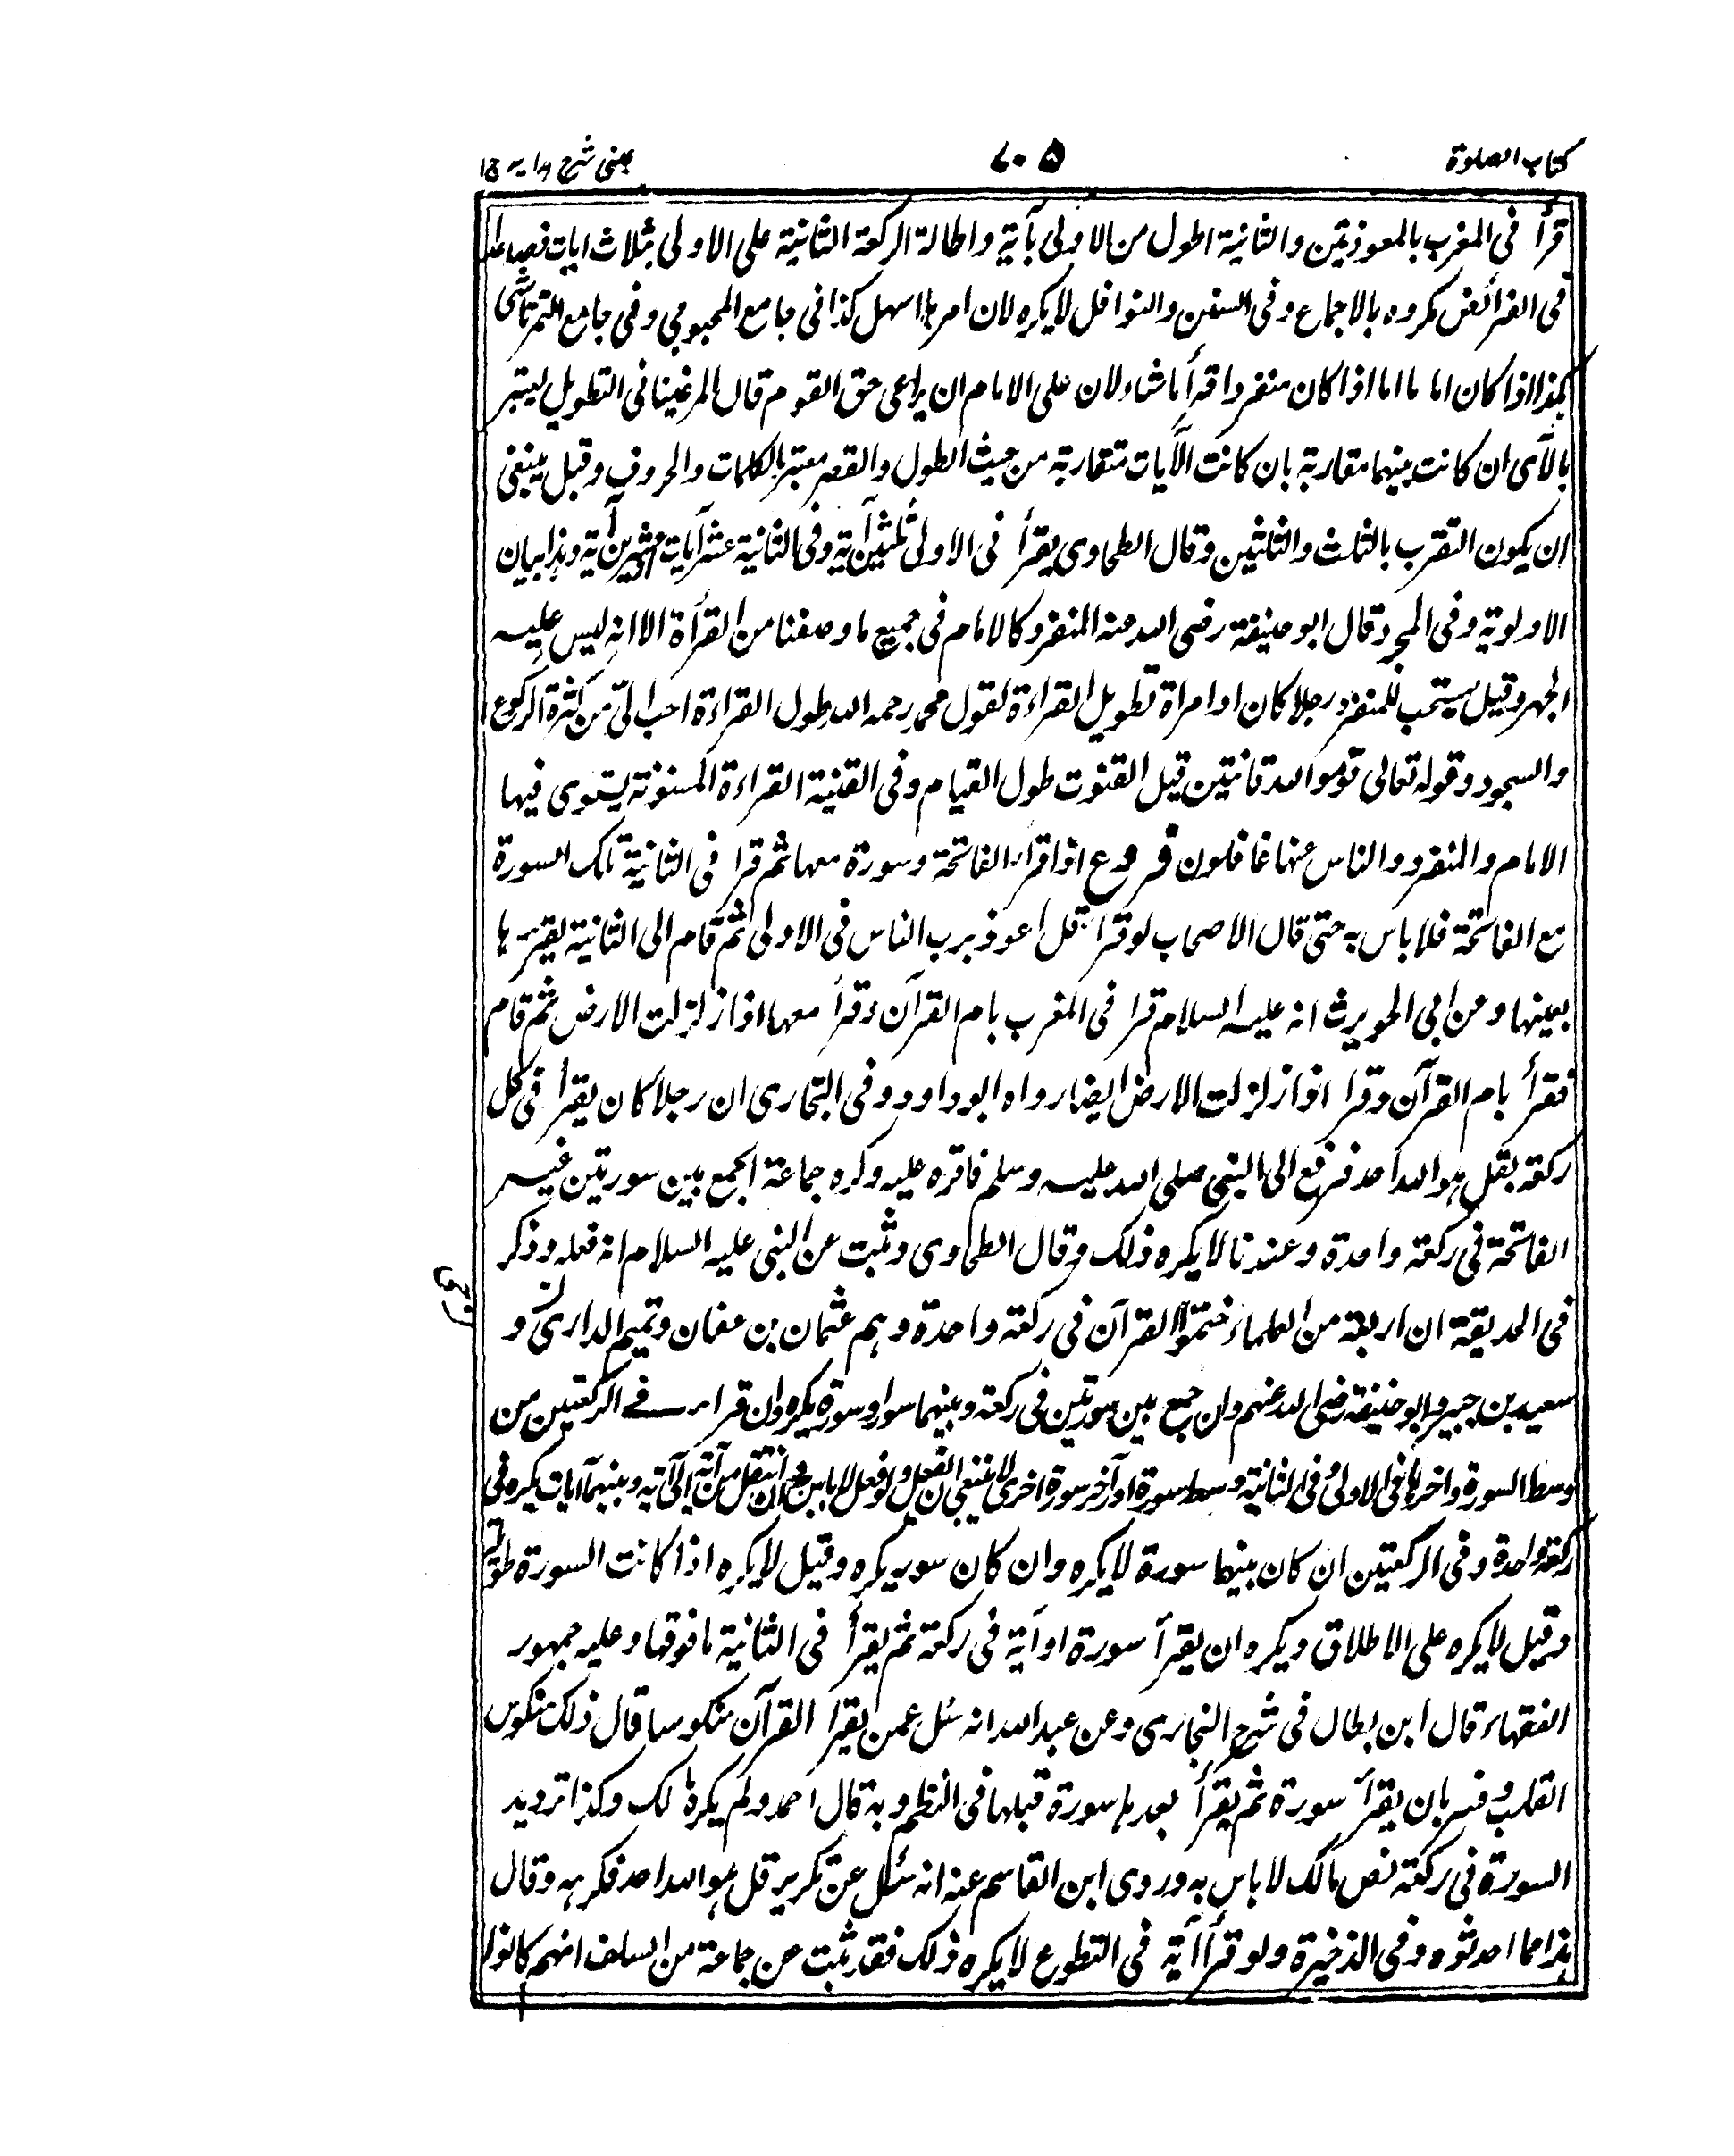 كتاب الصلوة
٧٠٥
عينى شرح هدايه ج ١
قرأ فى المغرب بالمعوذتين والثانية اطول من الاولى بآية واطالة الركعة الثانية على الاولى بثلاث ايات فصاعدا
فى الفرائض مكروه بالاجماع وفى السنن والنوافل لا يكره لان امرها اسهل كذا فى جامع المحبوبي وفى جامع التمرتاشى
هذا اذا كان اماما اما اذا كان منفردا قرأ ما شاء لان على الامام ان يراعى حق القوم قال المرغينانى التطويل يعتبر
بالآى ان كانت بينهما مقاربة بان كانت الآيات متقاربة من حيث الطول والقصر معتبر بالكلمات والحروف وقيل ينبغى
ان يكون التقرب بالثلث والثلثين وقال الطحاوى يقرأ فى الاولى ثلثين آية وفى الثانية عشر آيات او عشرين آية وهذا بيان
الاولوية وفى المجرد قال ابو حنيفة رضى الله عنه المنفرد كالامام فى جميع ما وصفنا من القرأة الا انه ليس عليه
الجهر وقيل يستحب للمنفرد رجلا كان او امراة تطويل القراءة لقول محمد رحمه الله طول القراءة احب الىّ من كثرة الركوع
والسجود وقوله تعالى قوموا لله قانتين قيل القنوت طول القيام وفى القنية القراءة المسنونة يستوى فيها
الامام والمنفرد والناس عنها غافلون فروع اذا قراء الفاتحة وسورة معها ثم قرا فى الثانية تلك السورة
مع الفاتحة فلا باس به حتى قال الاصحاب لو قرأ قل اعوذ برب الناس فى الاولى ثم قام الى الثانية يقرء ها
بعينها وعن ابى الحويرث انه عليه السلام قرا فى المغرب بام القرآن وقرأ معها اذا زلزلت الارض ثم قام
فقرأ بام القرآن وقرا اذا زلزلت الارض ايضا رواه ابو داود وفى البخارى ان رجلا كان يقرأ فى كل
ركعة بقل هو الله احد فرفع الى النبى صلى الله عليه وسلم فاقره عليه وكره جماعة الجمع بين سورتين غير
الفاتحة فى ركعة واحدة وعندنا لا يكره ذلك وقال الطحاوى وثبت عن النبى عليه السلام انه فعله وذكر
فى الحديقة ان اربعة من العلماء ختموا القرآن فى ركعة واحدة وهم عثمان بن عفان وتميم الدارى و
سعيد بن جبير وابو حنيفة رضى الله عنهم وان جمع بين سورتين فى ركعة وبينهما سور او سورة يكره وان قراء فى الركعتين من
وسط السورة واخرها فى الاولى وفى الثانية وسط سورة او آخر سورة اخرى لا ينبغى ان يفعل ولو فعل لا باس به وان انتقل من آية الى آية وبينهما آيات يكره فى
ركعة واحدة وفى الركعتين ان كان بينهما سورة لا يكره وان كان سور يكره وقيل لا يكره اذا كانت السورة طويلة
وقيل لا يكره على الاطلاق ويكره ان يقرأ سورة او آية فى ركعة ثم يقرأ فى الثانية ما فوقها وعليه جمهور
الفقهاء قال ابن بطال فى شرح البخارى وعن عبد الله انه سئل عمن يقرا القرآن منكوسا قال ذلك منكوس
القلب وفسر بان يقرأ سورة ثم يقرأ بعدها سورة قبلها فى النظم وبه قال احمد ولم يكره مالك وكذا ترديد
السورة فى ركعة نص مالك لا باس به وروى ابن القاسم عنه انه سئل عن تكرير قل هو الله احد فكرهه وقال
هذا مما احدثوه وفى الذخيرة ولو قرأ آية فى التطوع لا يكره ذلك فقد ثبت عن جماعة من السلف انهم كانوا